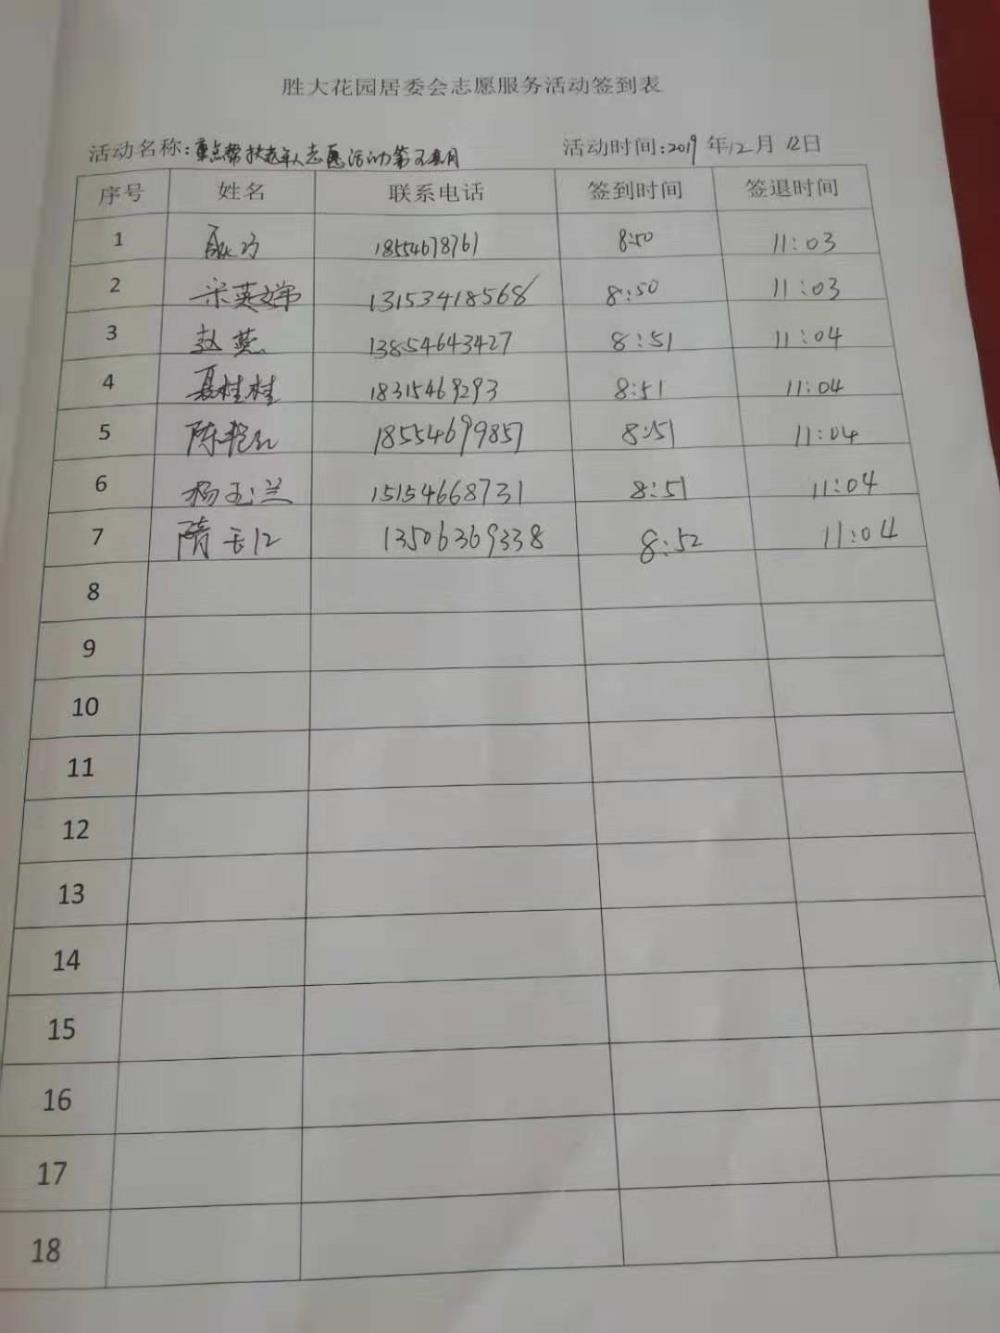 胜大花园居委会志愿服务活动签到表
活动名称:重点帮扶老年人志愿活动第 活动时间:2019年12月12日
序号 姓名 联系电话 签到时间 签退时间
1 18554678761 8:50 11:03
2 宋英娣 13153418568 8:50 11:03
3 赵燕 13854643427 8:51 11:04
4 聂桂桂 18315469293 8:51 11:04
5 陈艳红 18554699857 8:51 11:04
6 杨玉兰 15154668731 8:51 11:04
7 隋长江 13506369338 8:52 11:04
8
9
10
11
12
13
14
15
16
17
18